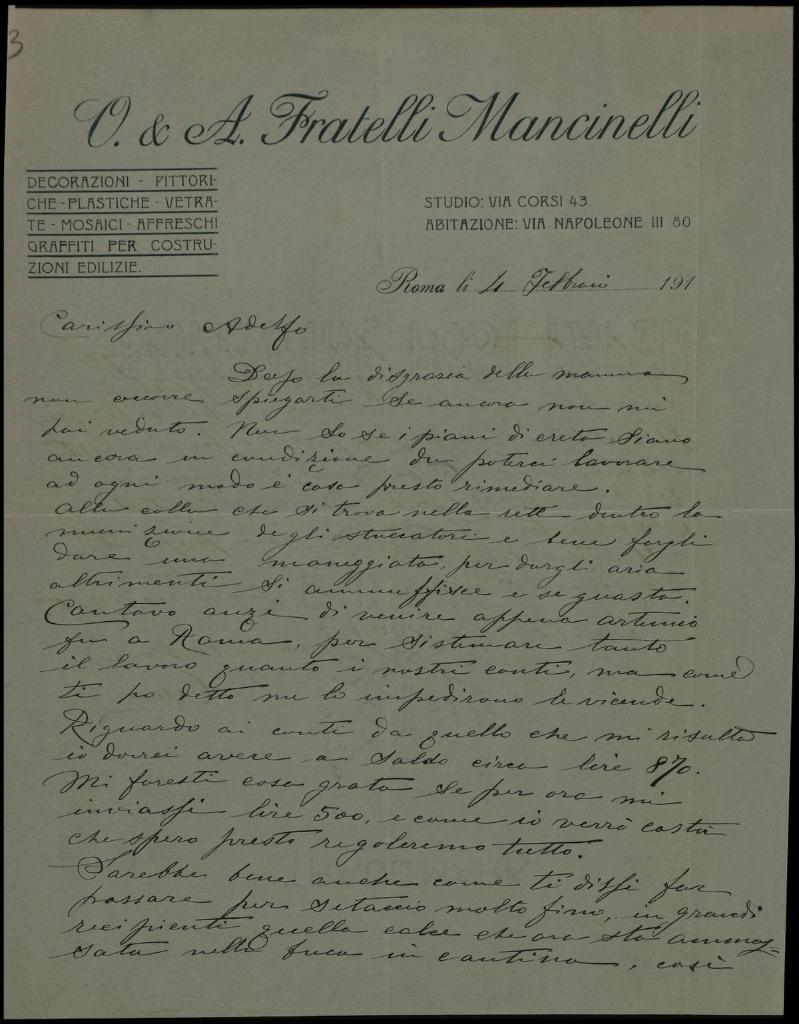 3
O. & A. Fratelli Mancinelli
DECORAZIONI - PITTORI-
CHE - PLASTICHE - VETRA-
TE - MOSAICI - AFFRESCHI
GRAFFITI PER COSTRU-
ZIONI EDILIZIE.
STUDIO: VIA CORSI 43
ABITAZIONE: VIA NAPOLEONE III 80
Roma li 4 Febbraio 191
Carissimo Adolfo
Dopo la disgrazia della mamma
non occorre spiegarti se ancora non mi
hai veduto. Non so se i piani di creta siano
ancora in condizione da poterci lavorare
ad ogni modo è cosa presto rimediare.
Alla colla che si trova nella rete dentro la
degli stuccatori e bene fargli
dare una maneggiata, per dargli aria
altrimenti si ammuffisce e se guasta.
Contavo anzi di venire appena
fu a Roma, per sistemare tanto
il lavoro quanto i nostri conti, ma come
ti ho detto me lo impedirono le vicende.
Riguardo ai conti da quello che mi risulta
io dovrei avere a saldo circa lire 870.
Mi faresti cosa grata se per ora mi
inviassi lire 500, e come io verrò costà
che spero presto regoleremo tutto.
Sarebbe bene anche come ti dissi far
passare per setaccio molto fino, in grandi
recipienti quella calce che ora sta ammas-
sata nella buca in cantina, così